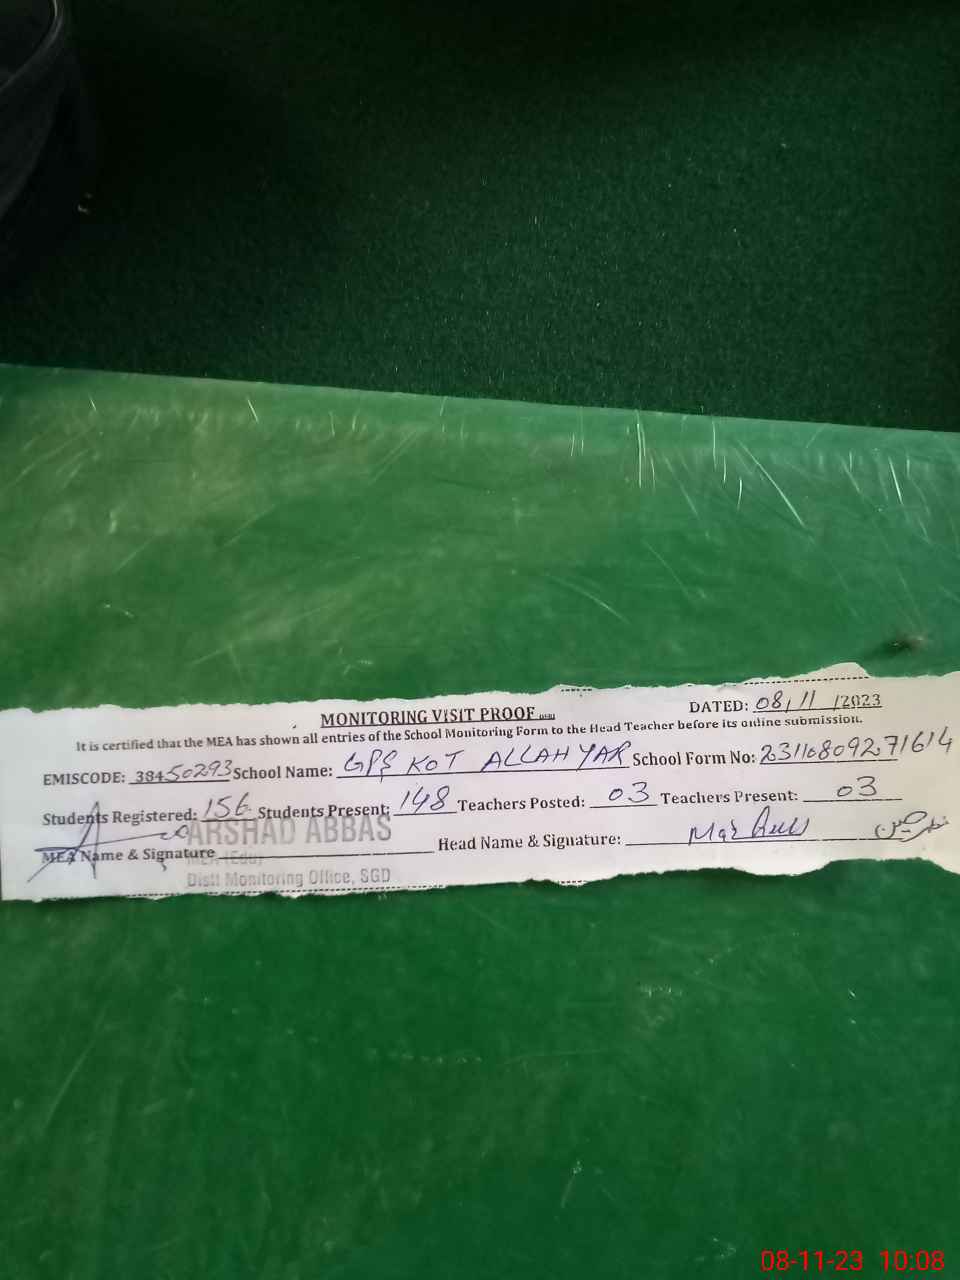 MONITORING VISIT PROOF
DATED: 08/11/2023
It is certified that the MEA has shown all entries of the School Monitoring Form to the Head Teacher before its online submission.
EMISCODE: 38450293 School Name: GPS KOT ALLAH YAR School Form No: 23110809271614
Students Registered: 156 Students Present: 148 Teachers Posted: 03 Teachers Present: 03
ARSHAD ABBAS
MEA Name & Signature Head Name & Signature:
MEA (Edu)
Distt Monitoring Office, SGD
08-11-23 10:08